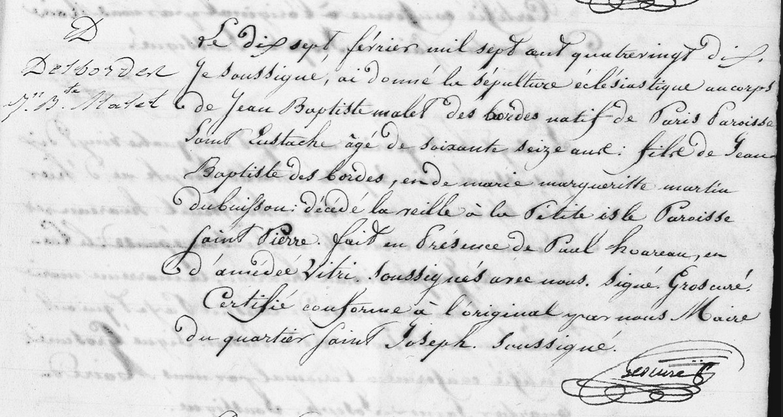 D
Desbordes
Jn. Bte. Malet
Le dix sept février mil sept cent quatrevingt dix.
Je soussigné, ai donné la sépulture éclesiastique au corps
de Jean Baptiste malet des bordes natif de Paris Paroisse
Saint Eustache âgé de soixante seize ans: fils de Jean
Baptiste des bordes, en de marie margueritte martin
dubuisson: décédé la veille à la Petite isle Paroisse
Saint Pierre. fait en Présence de Paul hoareau, en
d'amédeé Vitri. soussignés avec nous. signé. Groscuré.
Certifié conforme à l'original par nous Maire
du quartier Saint Joseph. Soussigné.